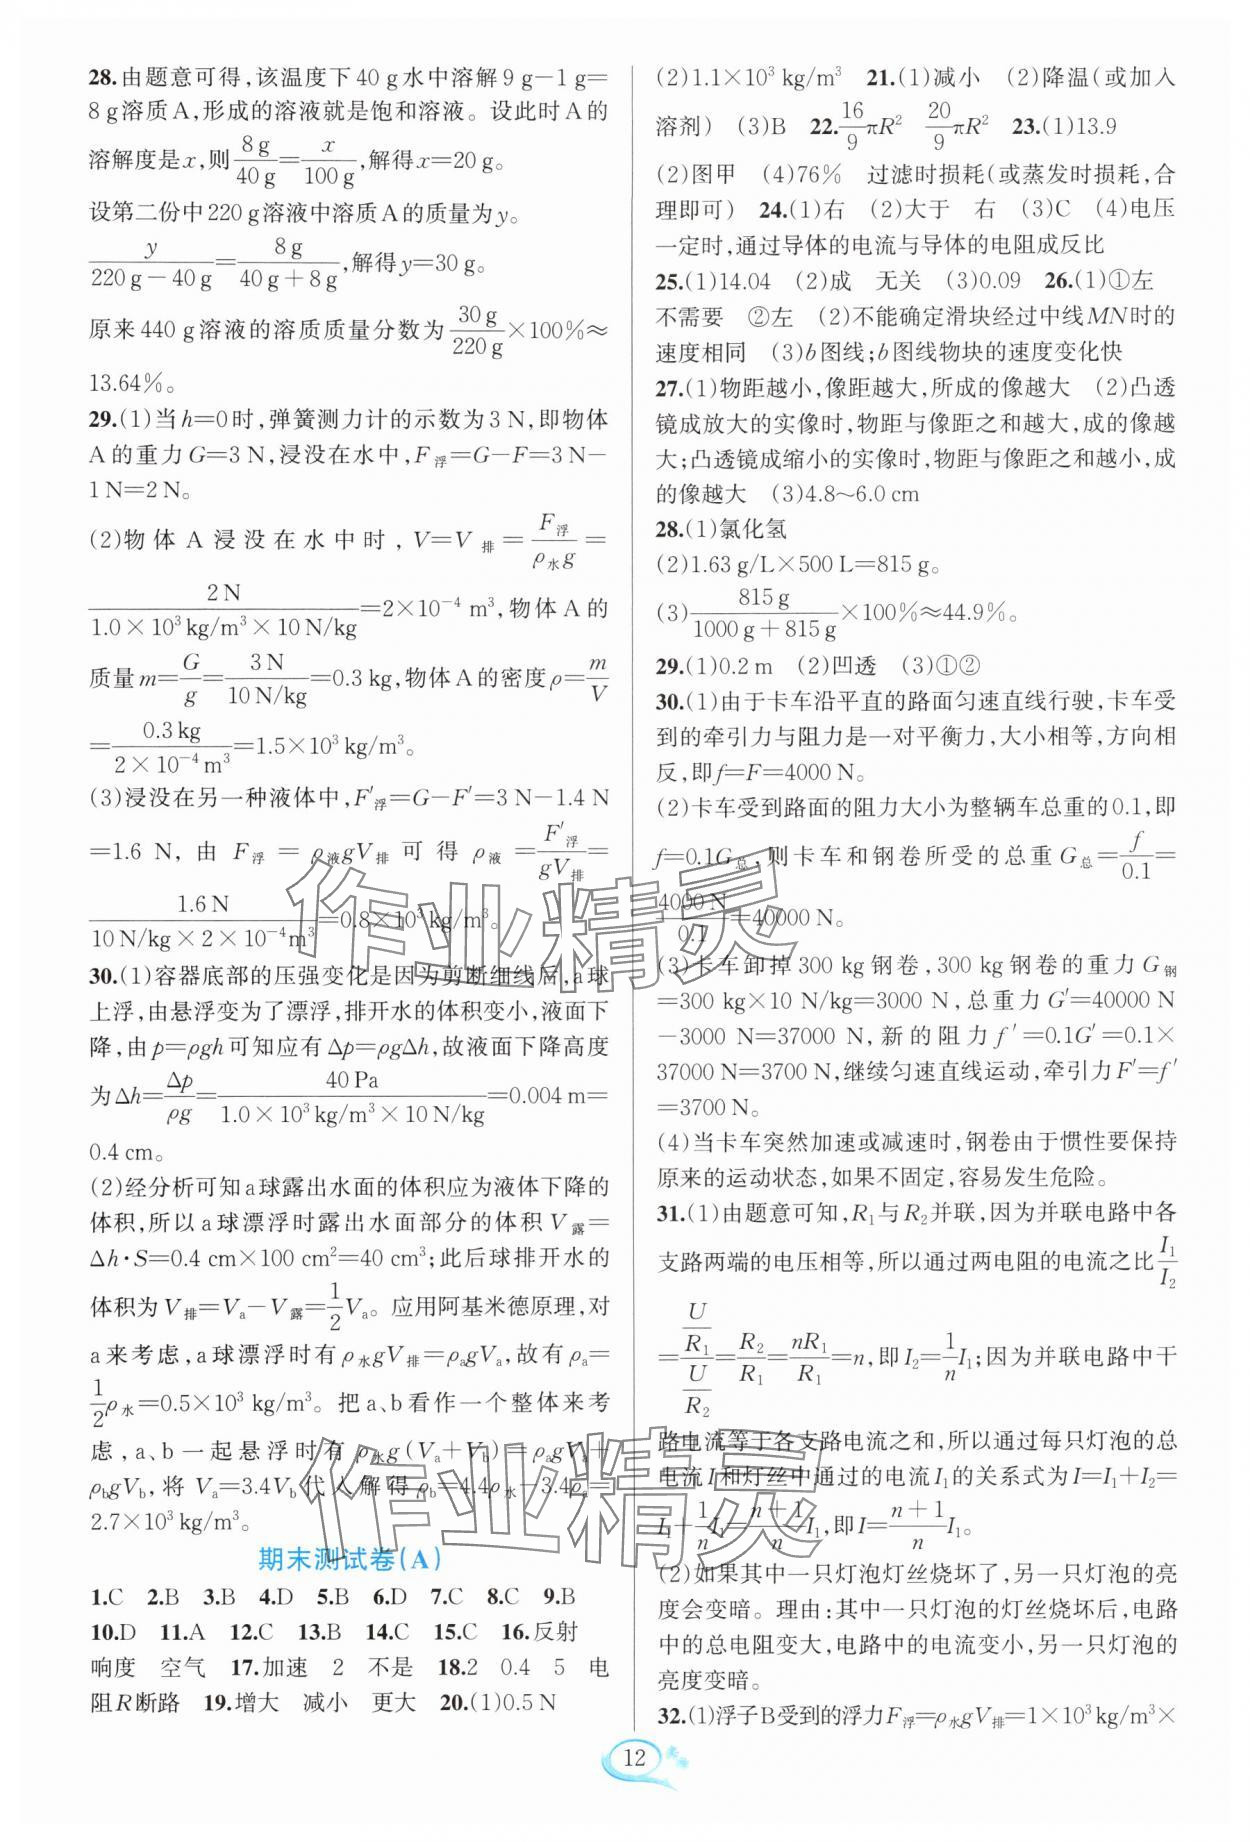 28.由题意可得,该温度下40 g水中溶解9 g−1 g=
8 g溶质A,形成的溶液就是饱和溶液。设此时A的
溶解度是x,则8 g/40 g=x/100 g,解得x=20 g。
设第二份中220 g溶液中溶质A的质量为y。
y/(220 g−40 g)=8 g/(40 g+8 g),解得y=30 g。
原来440 g溶液的溶质质量分数为30 g/220 g×100%≈
13.64%。
29.(1)当h=0时,弹簧测力计的示数为3 N,即物体
A的重力G=3 N,浸没在水中,F浮=G−F=3 N−
1 N=2 N。
(2)物体A浸没在水中时,V=V排=F浮/(ρ水g)=
2 N/(1.0×10³ kg/m³×10 N/kg)=2×10⁻⁴ m³,物体A的
质量m=G/g=3 N/(10 N/kg)=0.3 kg,物体A的密度ρ=m/V
=0.3 kg/(2×10⁻⁴ m³)=1.5×10³ kg/m³。
(3)浸没在另一种液体中,F′浮=G−F′=3 N−1.4 N
=1.6 N,由F浮=ρ液gV排可得ρ液=F′浮/(gV排)=
1.6 N/(10 N/kg×2×10⁻⁴ m³)=0.8×10³ kg/m³。
30.(1)容器底部的压强变化是因为剪断细线后,a球
上浮,由悬浮变为了漂浮,排开水的体积变小,液面下
降,由p=ρgh可知应有Δp=ρgΔh,故液面下降高度
为Δh=Δp/(ρg)=40 Pa/(1.0×10³ kg/m³×10 N/kg)=0.004 m=
0.4 cm。
(2)经分析可知a球露出水面的体积应为液体下降的
体积,所以a球漂浮时露出水面部分的体积V露=
Δh·S=0.4 cm×100 cm²=40 cm³;此后球排开水的
体积为V排=Va−V露=1/2Va。应用阿基米德原理,对
a来考虑,a球漂浮时有ρ水gV排=ρagVa,故有ρa=
1/2ρ水=0.5×10³ kg/m³。把a、b看作一个整体来考
虑,a、b一起悬浮时有ρ水g(Va+Vb)=ρagVa+
ρbgVb,将Va=3.4Vb代入解得ρb=4.4ρ水−3.4ρa=
2.7×10³ kg/m³。
期末测试卷(A)
1.C 2.B 3.B 4.D 5.B 6.B 7.C 8.C 9.B
10.D 11.A 12.C 13.B 14.C 15.C 16.反射
响度 空气 17.加速 2 不是 18.2 0.4 5 电
阻R断路 19.增大 减小 更大 20.(1)0.5 N
(2)1.1×10³ kg/m³ 21.(1)减小 (2)降温(或加入
溶剂) (3)B 22.16/9πR² 20/9πR² 23.(1)13.9
(2)图甲 (4)76% 过滤时损耗(或蒸发时损耗,合
理即可) 24.(1)右 (2)大于 右 (3)C (4)电压
一定时,通过导体的电流与导体的电阻成反比
25.(1)14.04 (2)成 无关 (3)0.09 26.(1)①左
不需要 ②左 (2)不能确定滑块经过中线MN时的
速度相同 (3)b图线;b图线物块的速度变化快
27.(1)物距越小,像距越大,所成的像越大 (2)凸透
镜成放大的实像时,物距与像距之和越大,成的像越
大;凸透镜成缩小的实像时,物距与像距之和越小,成
的像越大 (3)4.8~6.0 cm
28.(1)氯化氢
(2)1.63 g/L×500 L=815 g。
(3)815 g/(1000 g+815 g)×100%≈44.9%。
29.(1)0.2 m (2)凹透 (3)①②
30.(1)由于卡车沿平直的路面匀速直线行驶,卡车受
到的牵引力与阻力是一对平衡力,大小相等,方向相
反,即f=F=4000 N。
(2)卡车受到路面的阻力大小为整辆车总重的0.1,即
f=0.1G总,则卡车和钢卷所受的总重G总=f/0.1=
4000 N/0.1=40000 N。
(3)卡车卸掉300 kg钢卷,300 kg钢卷的重力G钢
=300 kg×10 N/kg=3000 N,总重力G′=40000 N
−3000 N=37000 N,新的阻力f′=0.1G′=0.1×
37000 N=3700 N,继续匀速直线运动,牵引力F′=f′
=3700 N。
(4)当卡车突然加速或减速时,钢卷由于惯性要保持
原来的运动状态,如果不固定,容易发生危险。
31.(1)由题意可知,R₁与R₂并联,因为并联电路中各
支路两端的电压相等,所以通过两电阻的电流之比I₁/I₂
=(U/R₁)/(U/R₂)=R₂/R₁=nR₁/R₁=n,即I₂=1/nI₁;因为并联电路中干
路电流等于各支路电流之和,所以通过每只灯泡的总
电流I和灯丝中通过的电流I₁的关系式为I=I₁+I₂=
I₁+1/nI₁=(n+1)/nI₁,即I=(n+1)/nI₁。
(2)如果其中一只灯泡灯丝烧坏了,另一只灯泡的亮
度会变暗。理由:其中一只灯泡的灯丝烧坏后,电路
中的总电阻变大,电路中的电流变小,另一只灯泡的
亮度变暗。
32.(1)浮子B受到的浮力F浮=ρ水gV排=1×10³ kg/m³×
12
作业精灵
作业精灵